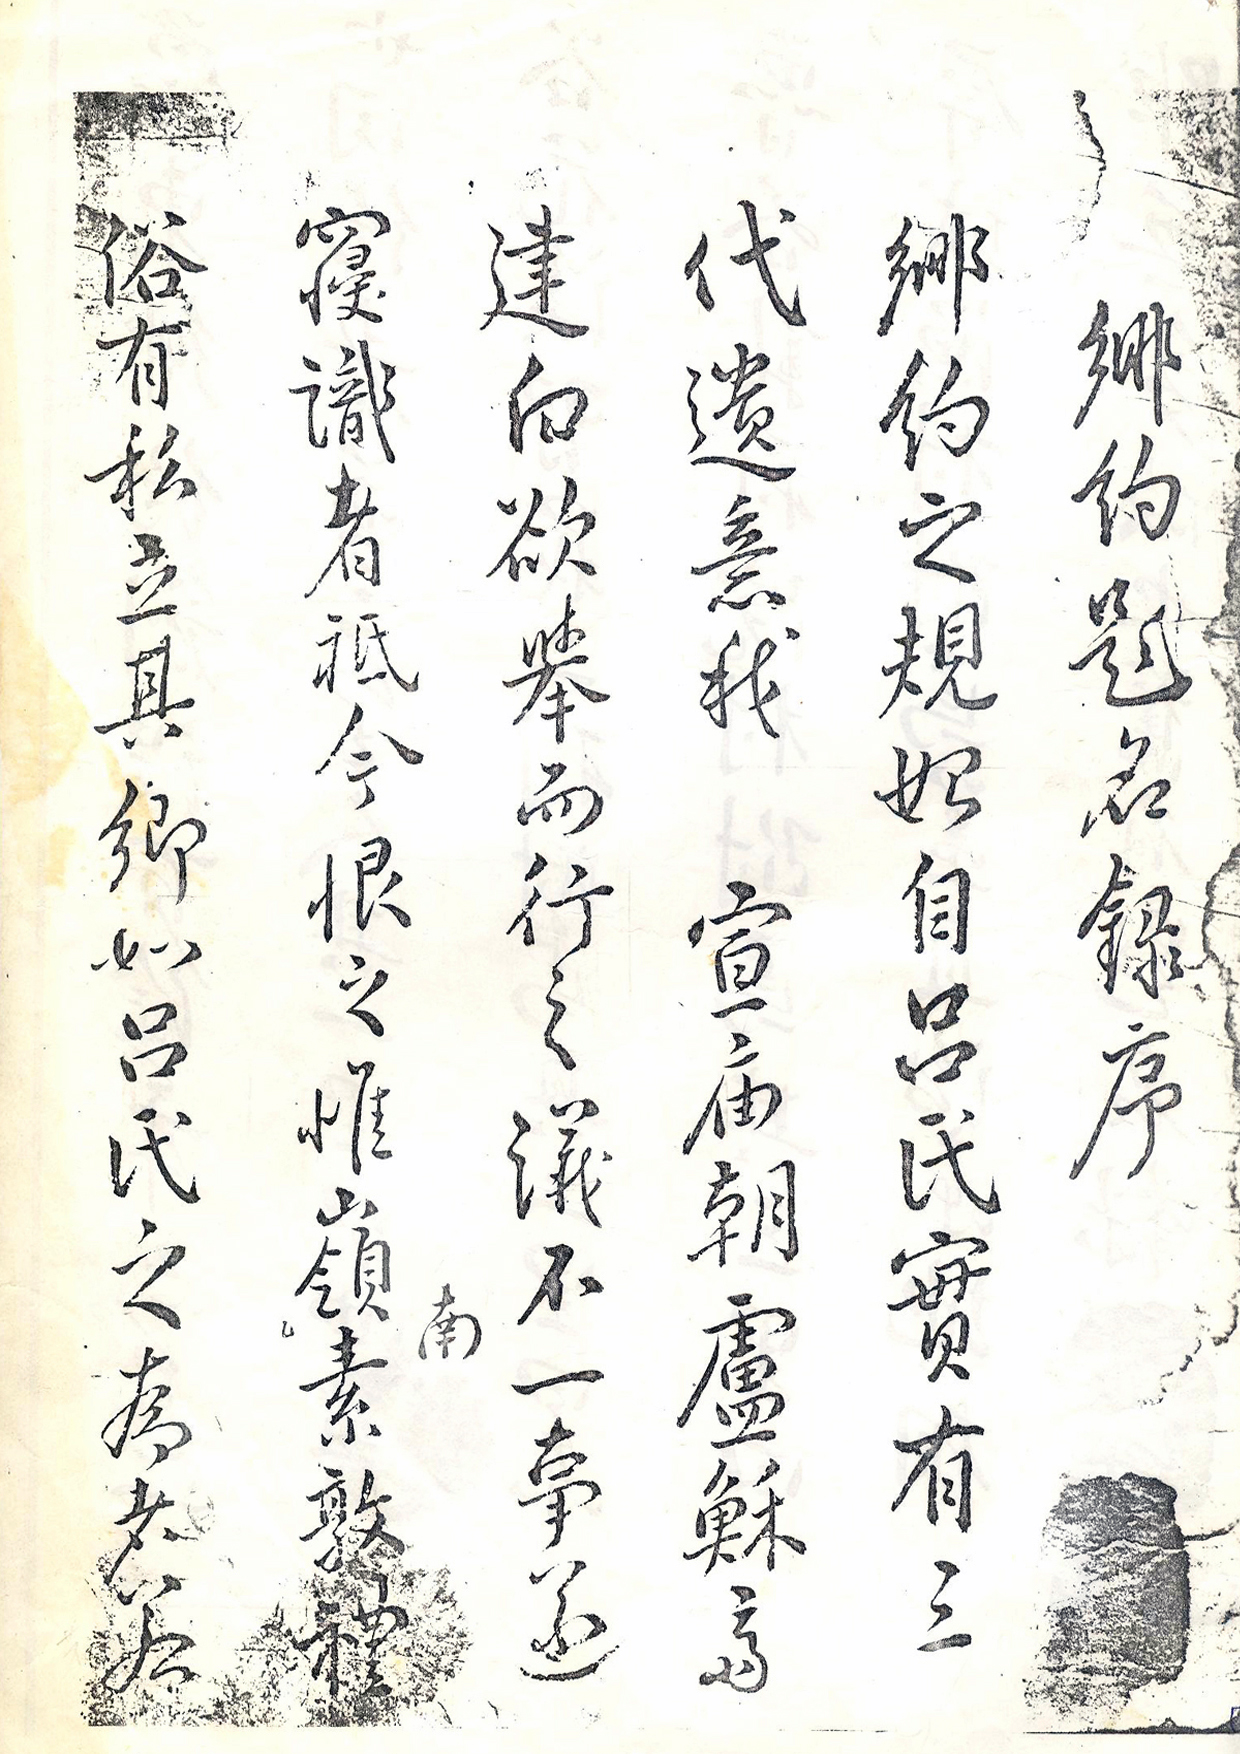 鄕約題名錄序
鄕約之規始自呂氏實有三
代遺意我 宣庙朝盧穌斎
建白欲擧而行之議不一事遂
寢識者祗今恨之惟嶺南素敦禮
俗有私立其鄕如呂氏之為者若